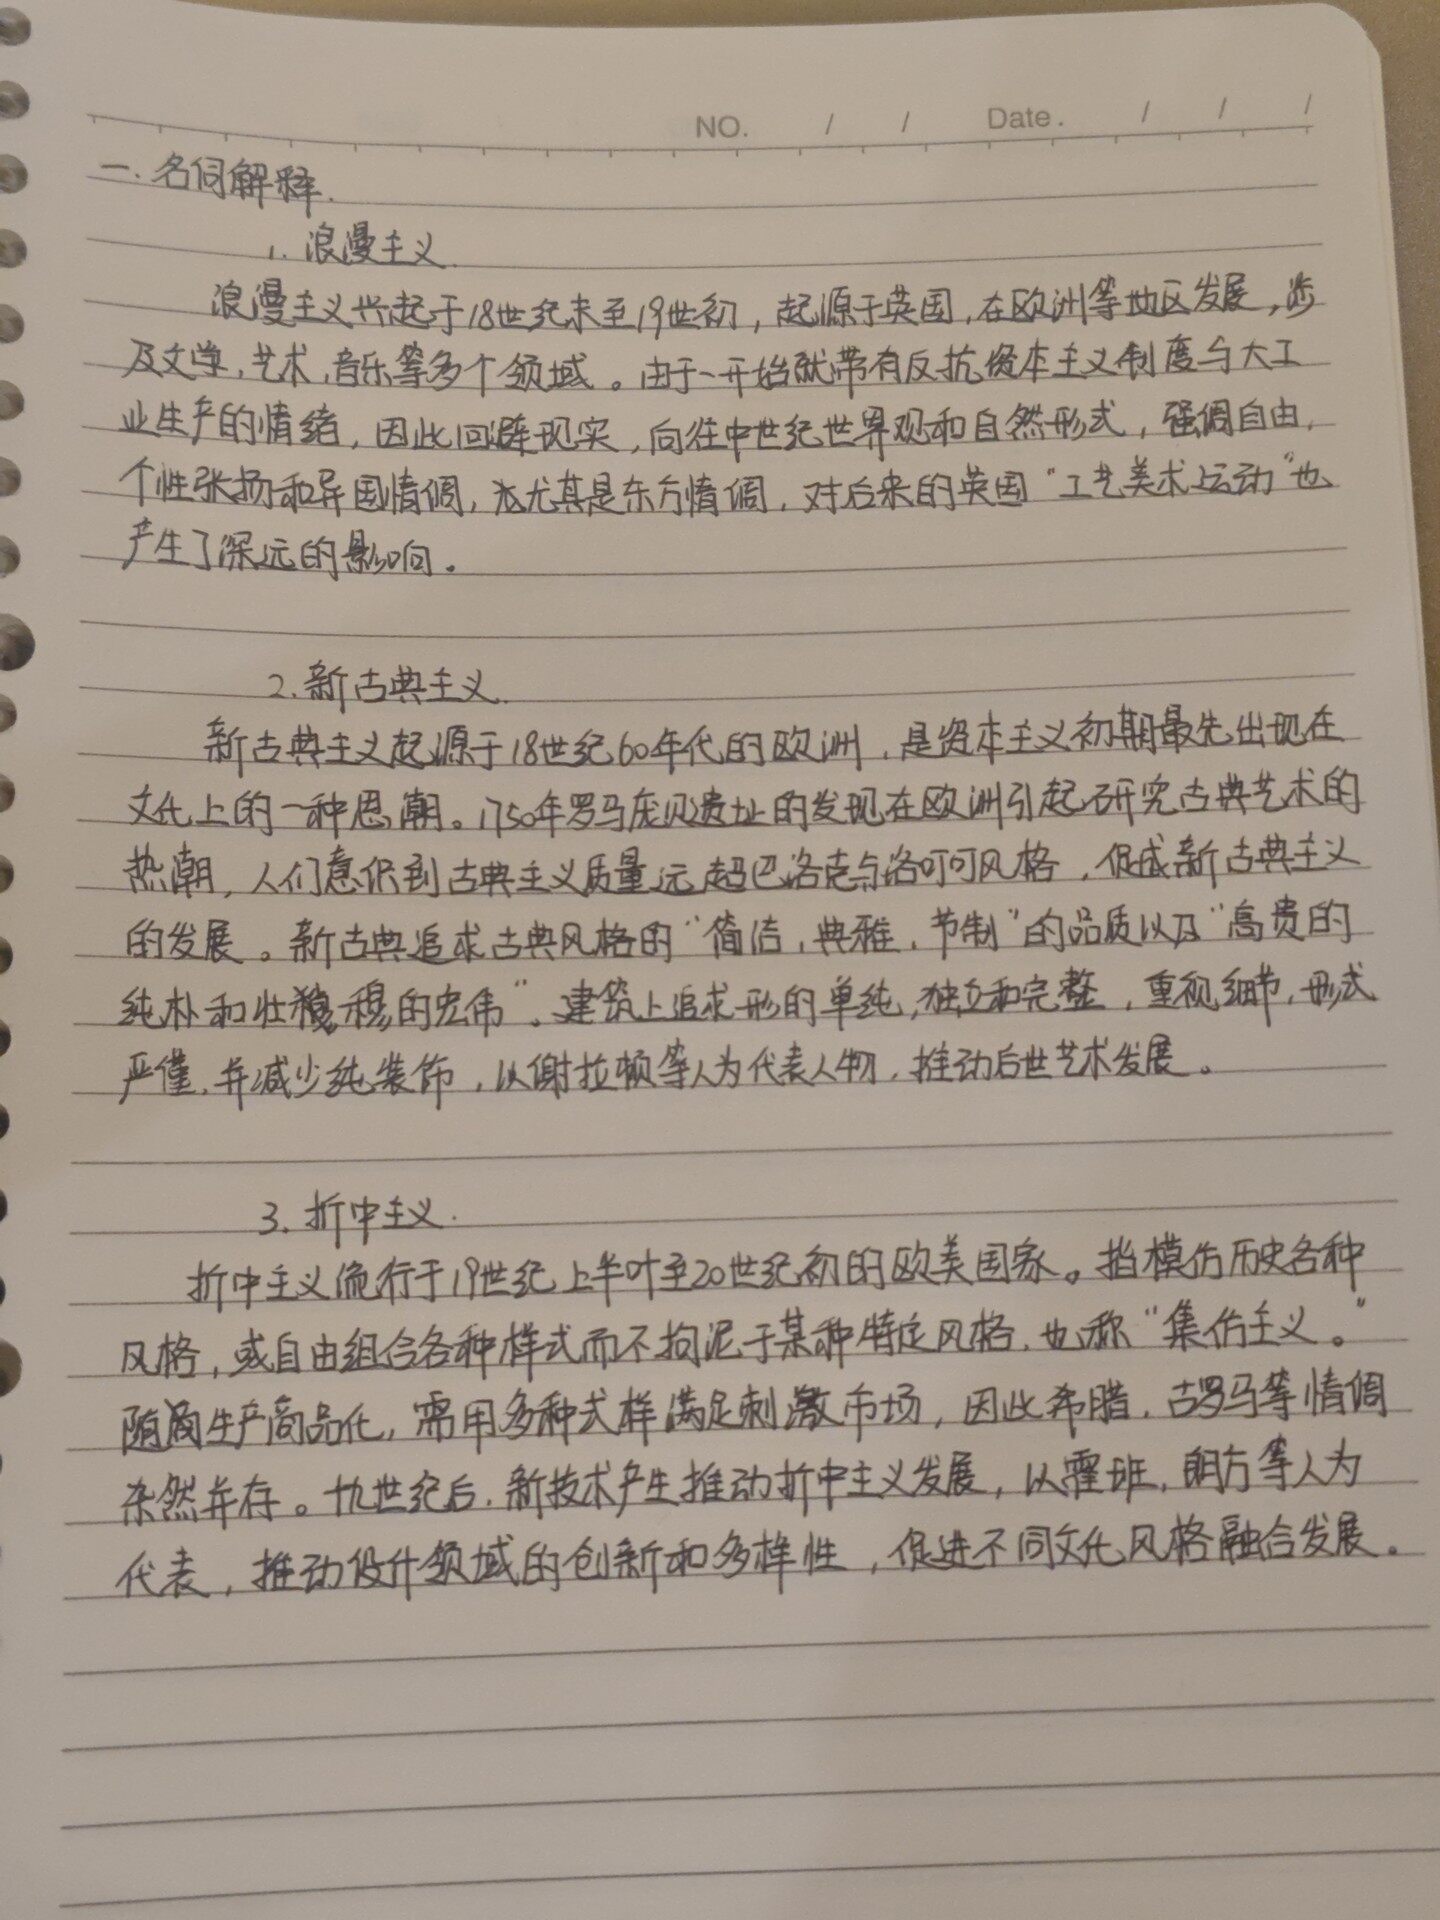 NO. / / Date. / / /
一.名词解释.
1. 浪漫主义.
浪漫主义兴起于18世纪末至19世初，起源于英国，在欧洲等地区发展，涉
及文学，艺术，音乐等多个领域。由于一开始就带有反抗资本主义制度与大工
业生产的情绪，因此回避现实，向往中世纪世界观和自然形式，强调自由，
个性张扬和异国情调，尤其是东方情调，对后来的英国“工艺美术运动”也
产生了深远的影响。
2. 新古典主义.
新古典主义起源于18世纪60年代的欧洲，是资本主义初期最先出现在
文化上的一种思潮。1750年罗马庞贝遗址的发现在欧洲引起研究古典艺术的
热潮，人们意识到古典主义质量远超巴洛克与洛可可风格，促成新古典主义
的发展。新古典追求古典风格的“简洁，典雅，节制”的品质以及“高贵的
纯朴和壮穆的宏伟”。建筑上追求形的单纯，独立和完整，重视细节，形式
严谨，并减少纯装饰，以谢拉顿等人为代表人物，推动后世艺术发展。
3. 折中主义.
折中主义流行于19世纪上半叶至20世纪初的欧美国家。指模仿历史各种
风格，或自由组合各种样式而不拘泥于某种特定风格，也称“集仿主义。”
随生产商品化，需用多种式样满足刺激市场，因此希腊，古罗马等情调
杂然并存。十九世纪后，新技术产生推动折中主义发展，以霍班，明方等人为
代表，推动设计领域的创新和多样性，促进不同文化风格融合发展。